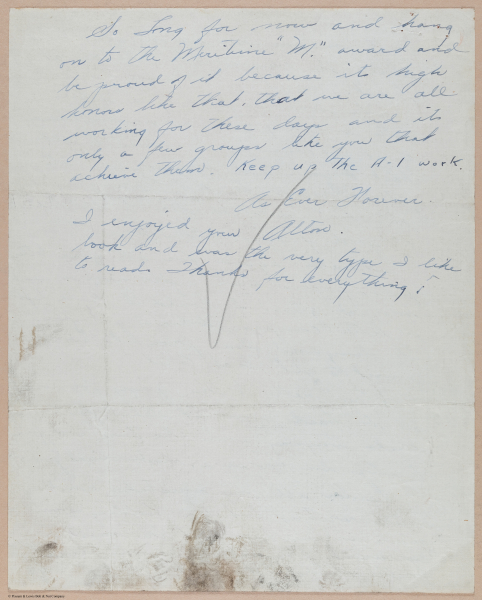 So Long for now and hang
on to the Mauritime "M." award and
be proud of it because its high
honors like that, that we are all
working for these days and its
only a few groups like you that
achieve them. Keep up the A-1 work.
As Ever Forever.
Alton.
I enjoyed your
book and was the very type I like
to read. Thanks for everything!